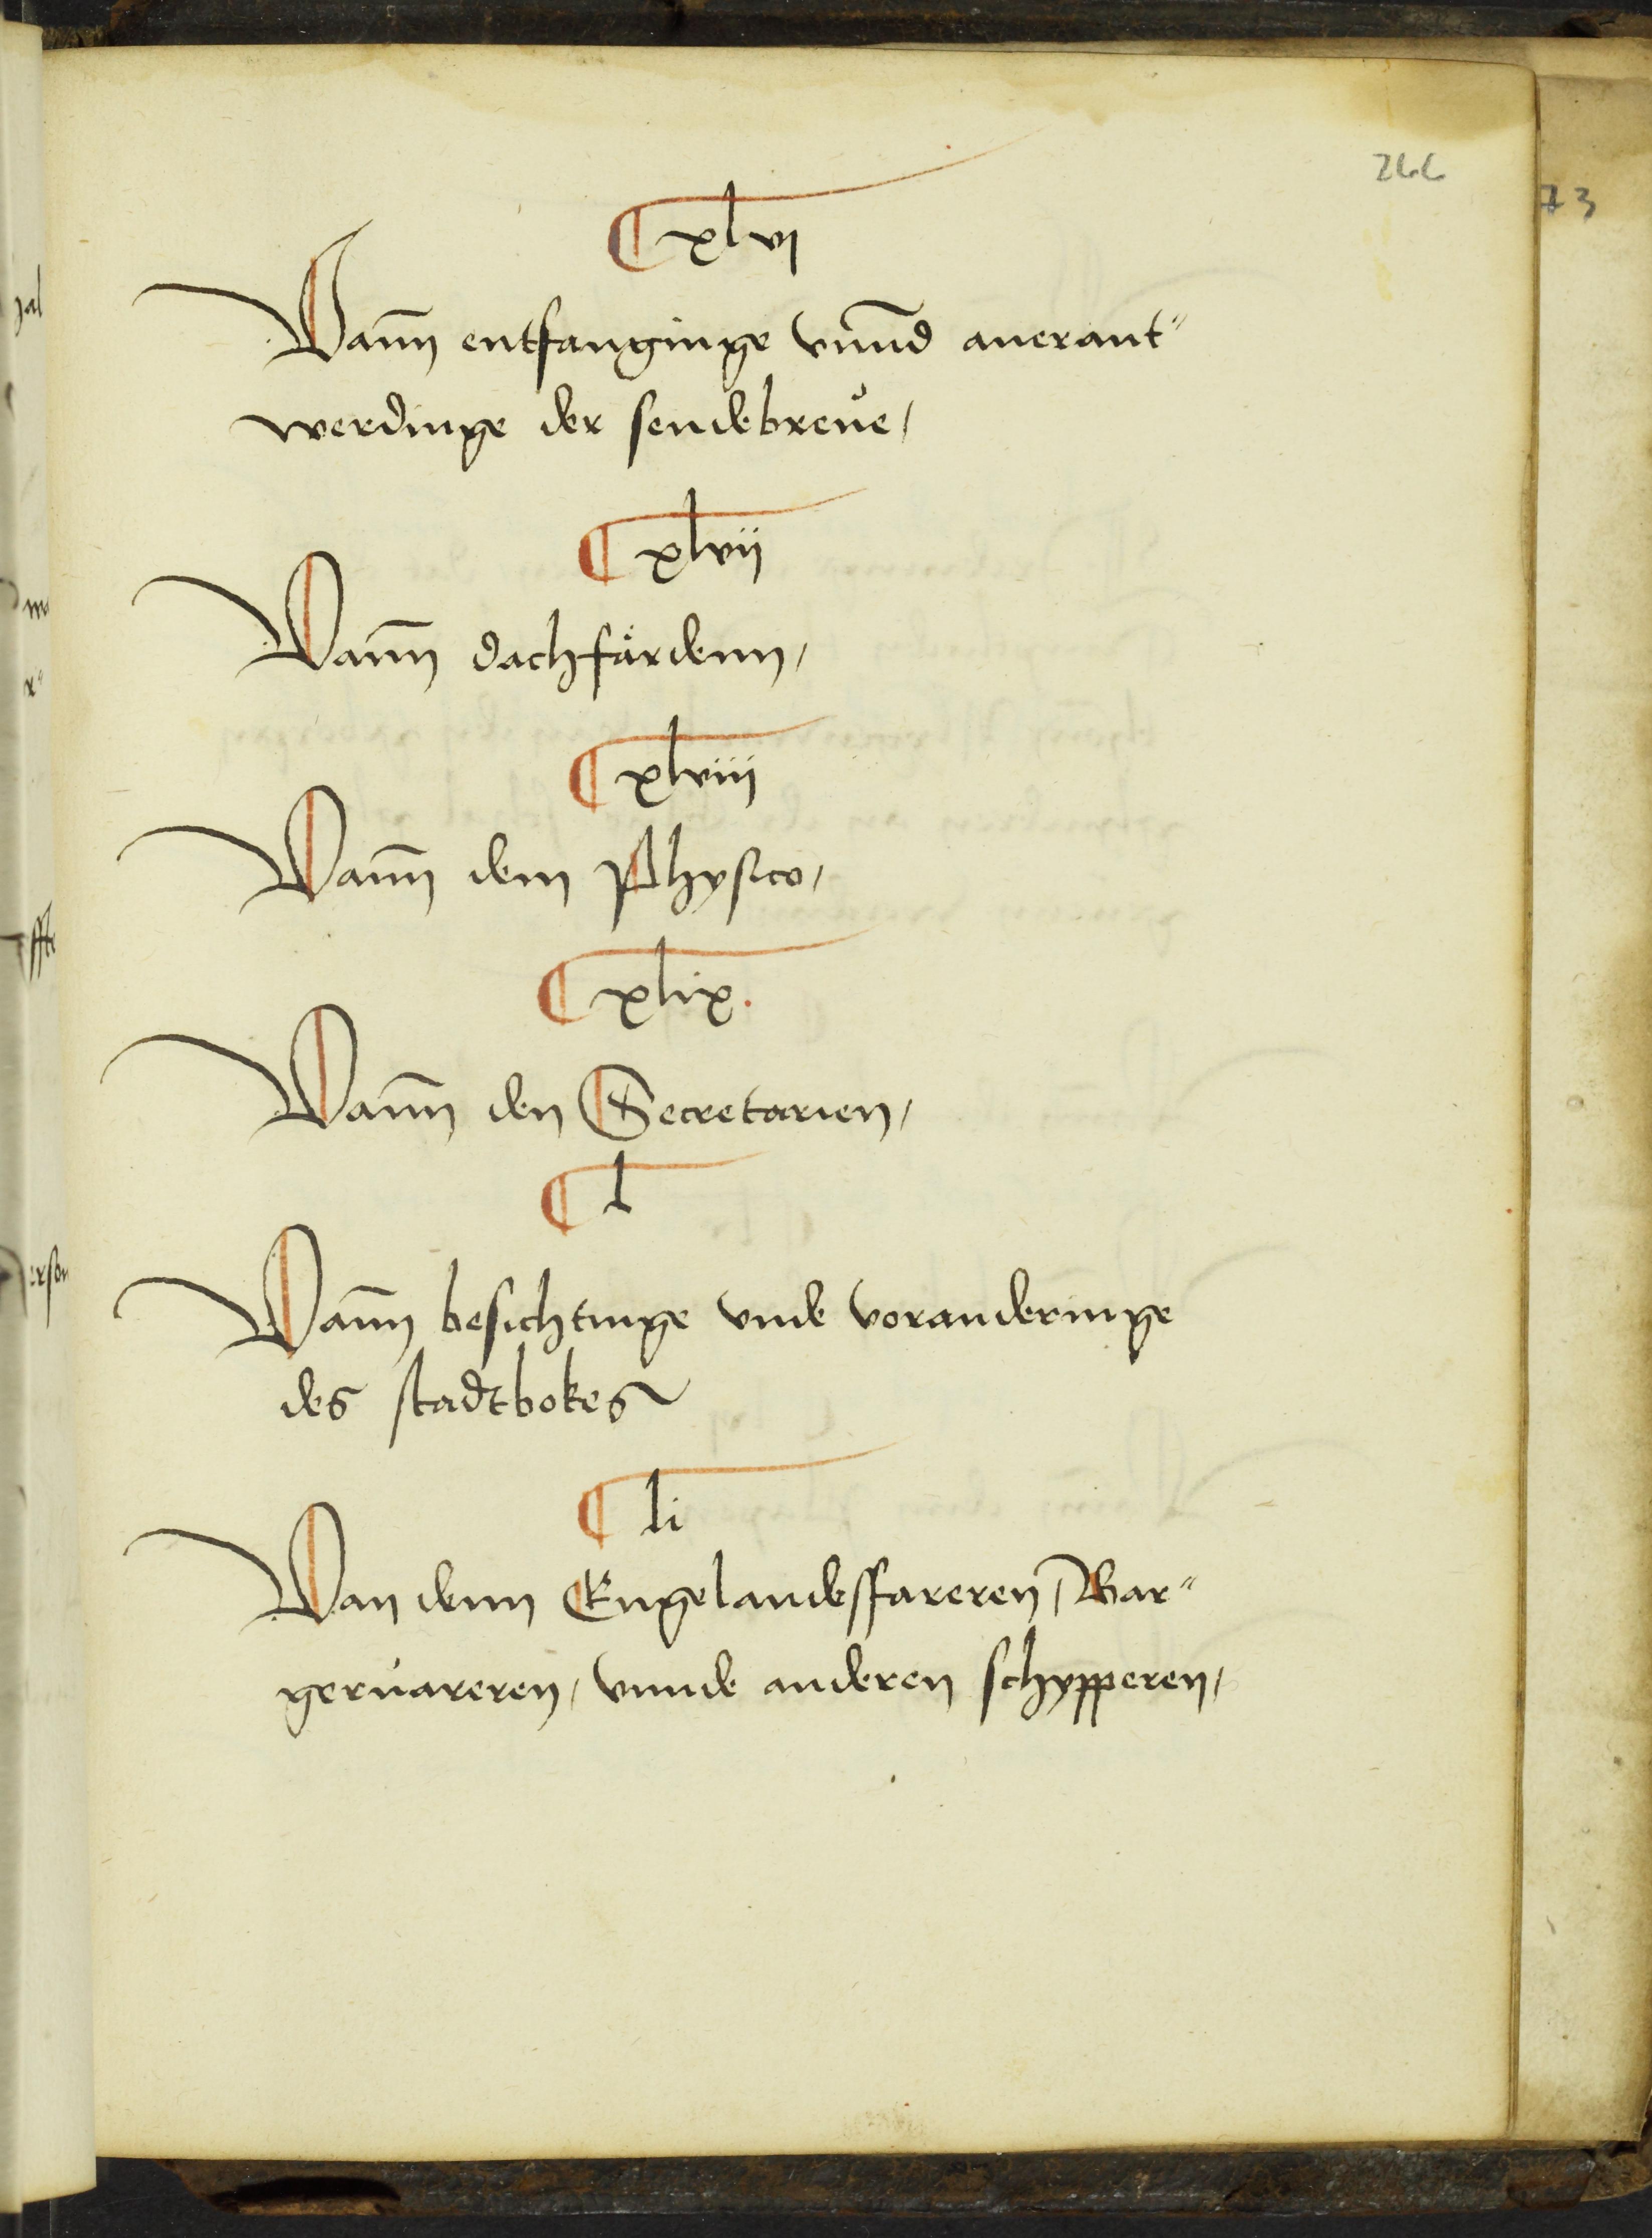 266
73
¶ xlvi
Vann̄ entfanginge vnn̄d auerant"
werdinge der sendebreue/
¶ xlvii
Vann̄ dachfårdenn/
¶ xlviii
Vann̄ dem Physico/
¶ xlix.
Vann̄ den Secretarien/
¶ l
Vann̄ besichtinge vnde voranderinge
des stadtbokes
¶ li
Van denn Engelandesffareren/ Bar"
geruareren/ vnnde anderen schypperen/